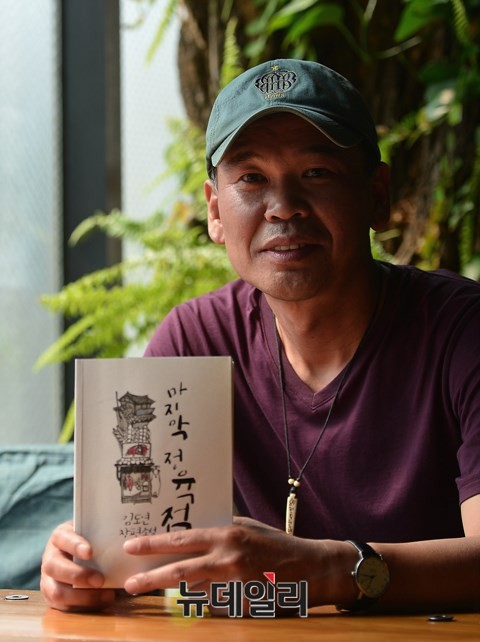 마지막 정육점
김도연
장편소설
뉴데일리